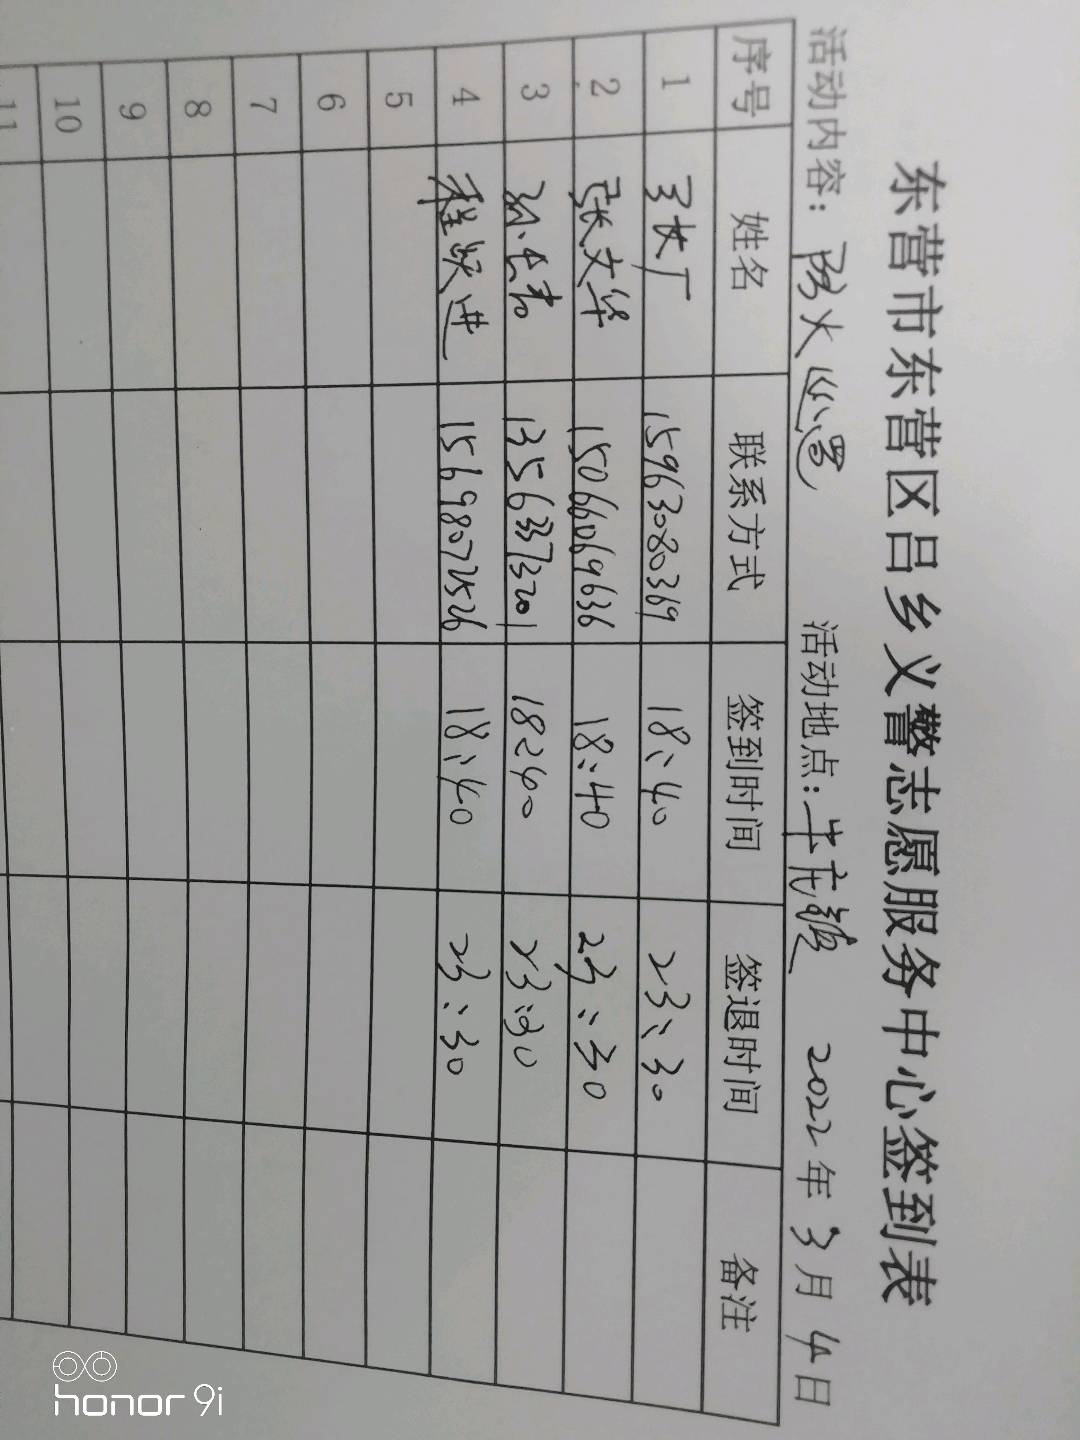 东营市东营区吕乡义警志愿服务中心签到表
活动内容: 防火巡逻 活动地点: 牛庄镇 2022年3月4日
序号 姓名 联系方式 签到时间 签退时间 备注
1 15963080369 18:40 23:30
2 张文华 15066069636 18:40 23:30
3 135633573201 18:40 23:30
4 程跃进 15698072526 18:40 23:30
5
6
7
8
9
10
11
honor 9i